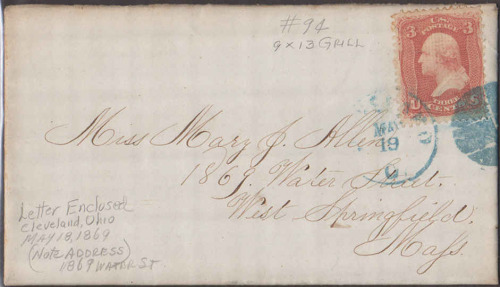 #94
9 x 13 GRILL
3 U.S. POSTAGE 3
THREE CENTS
MAY
19
O.
Miss Mary J. Allen
1869. Water Street.
West Springfield.
Mass.
Letter Enclosed
Cleveland, Ohio
MAY 18, 1869
(Note ADDRESS)
1869 WATER ST